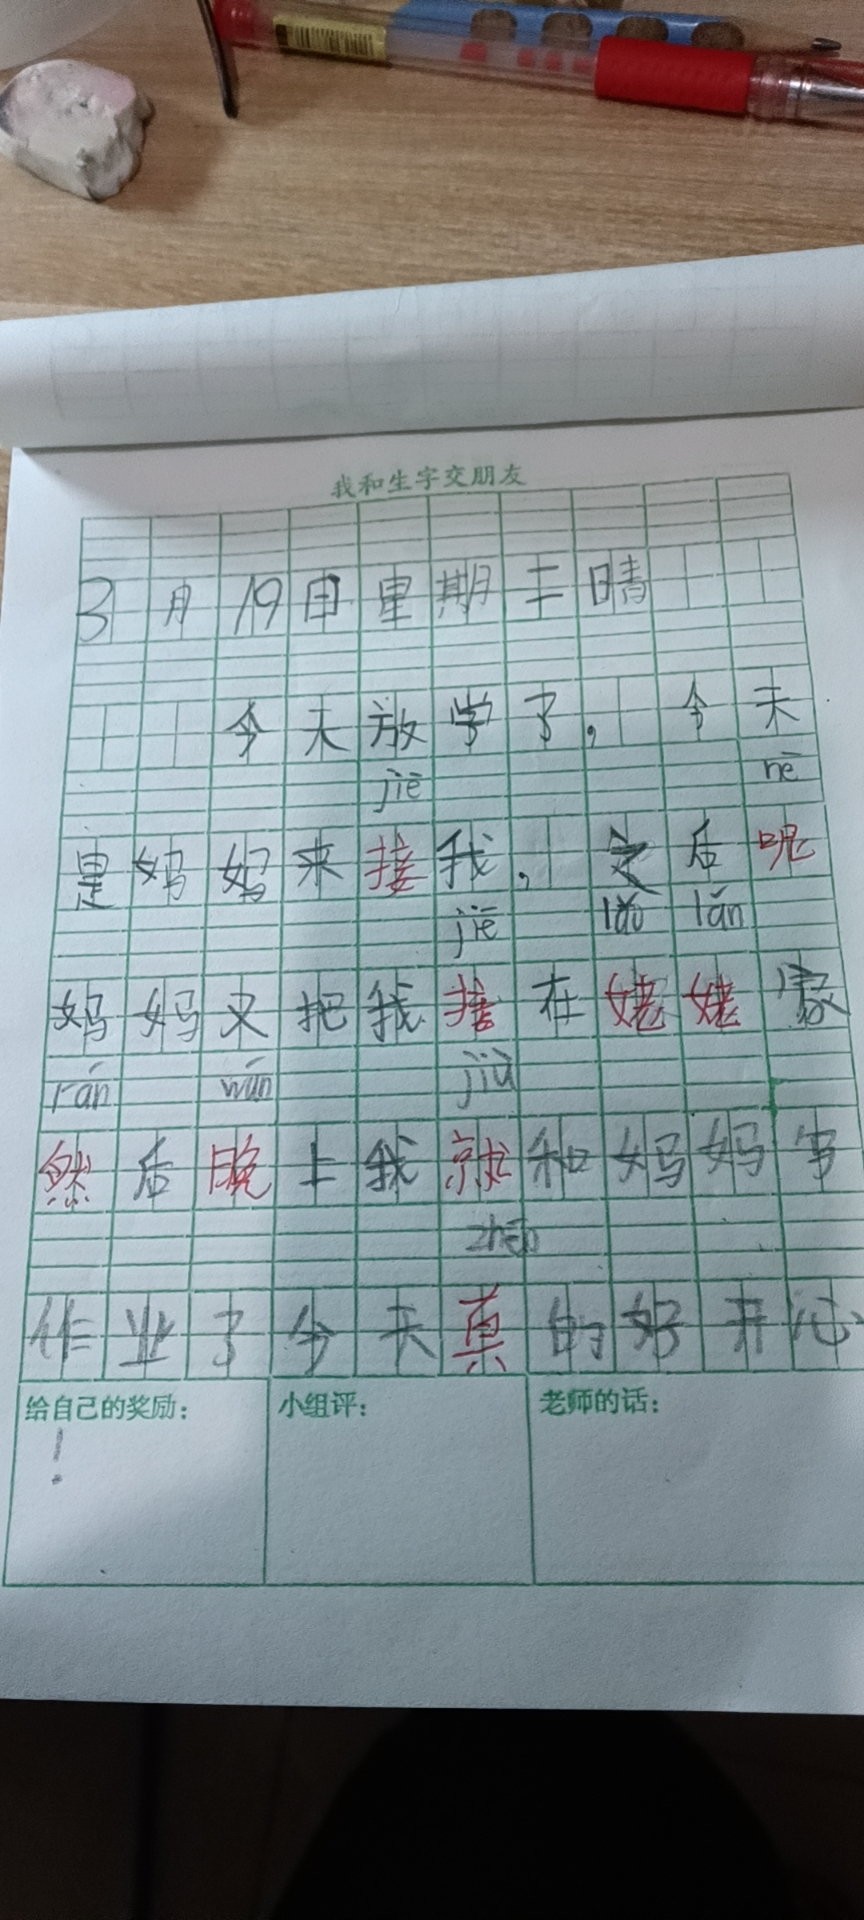 我和生字交朋友
3月19日星期二晴
今天放学了，今天
jiē nē
是妈妈来接我，之后呢
jiē lǎo lǎn
妈妈又把我接在姥姥家
rán wǎn jiù
然后晚上我就和妈妈写
zhēn
作业了今天真的好开心
给自己的奖励： 小组评： 老师的话：
！